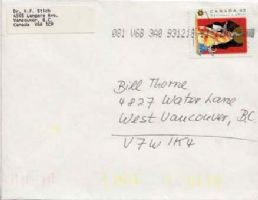 Dr. W.F. Stich
4565 Langara Ave.
Vancouver, B.C.
Canada V6R 1C9
081 V6B 3A0 931219
CANADA 43
Bill Thorne
4827 Water Lane
West Vancouver, B.C.
V7W 1K4